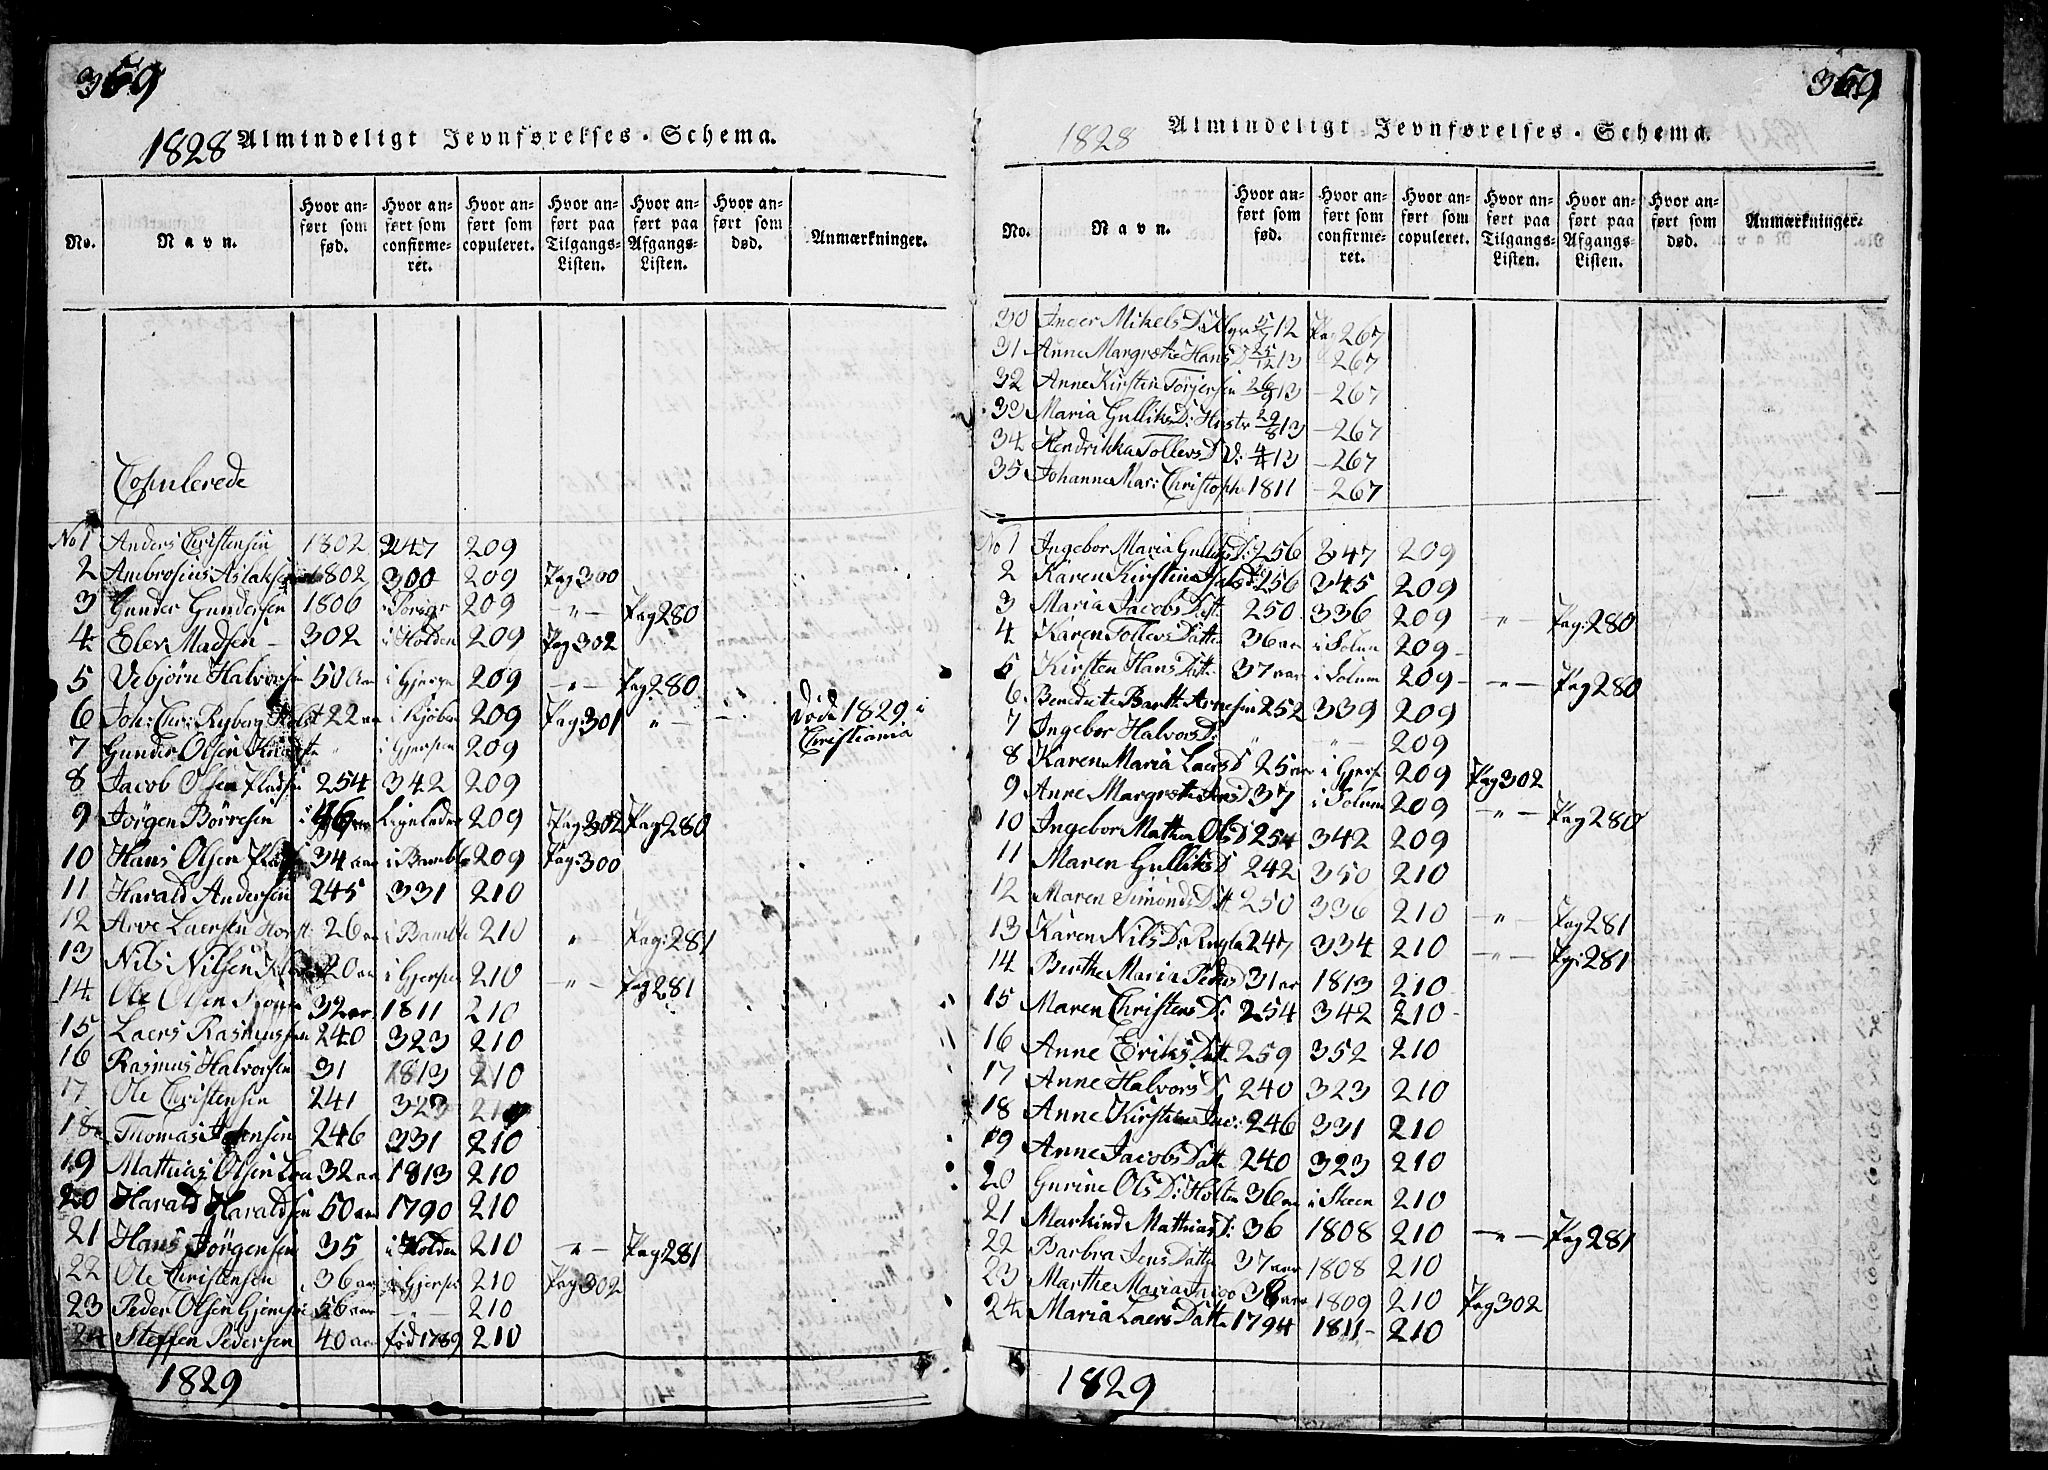 359
1828 Almindeligt Jevnførelses-Schema.
No. Navn. Hvor anført som fød. Hvor anført som confirmeret. Hvor anført som copuleret. Hvor anført paa Tilgangs-Listen. Hvor anført paa Afgangs-Listen. Hvor anført som død. Anmærkninger.
Copulerede
No 1 Anders Christensen 1802 347 209
2 Ambrosius Aslaksen 1802 300 209 Pag 300
3 Gunder Gundersen 1806 209 -"- Pag 280
4 Elev Madsen - 302 i Holden 209 Pag 302
5 Vebjørn Halvorsen 50 aar i Gjerpen 209 -"- Pag 280
6 Joh: Chr: Ryberg Holst 22 aar i Kjøben 209 Pag: 301 "
døde 1829 i
Christiania
7 Gunder Olsen " i Gjerpen 209
8 Jacob Olsen 254 342 209
9 Jørgen Børresen 46 209 Pag 302 Pag 280
10 Hans Olsen 34 aar i Bamble 209 Pag: 300
11 Harald Andersen 245 331 210
12 Arve Laersen 26 aar i Bamble 210 " - Pag: 281
13 Nils Nilsen 20 aar i Gjerpen 210 -"- Pag 281
14 Ole Olsen 32 aar 1811 210
15 Laers Rasmussen 240 323 210
16 Rasmus Halvorsen 31 1813 210
17 Ole Christensen 241 323 210
18 Thomas Jensen 246 331 210
19 Mathias Olsen 32 aar 1813 210
20 Harald Haraldsen 50 aar 1790 210
21 Hans Jørgensen 35 i Holden 210 " - Pag: 281
22 Ole Christensen 36 aar i Gjerpen 210 Pag: 302
23 Peder Olsen 56 aar - - 210
24 Steffen Pedersen 40 aar fød 1789 210
1829
359
1828 Almindeligt Jevnførelses-Schema.
No. Navn. Hvor anført som fød. Hvor anført som confirmeret. Hvor anført som copuleret. Hvor anført paa Tilgangs-Listen. Hvor anført paa Afgangs-Listen. Hvor anført som død. Anmærkninger.
30 Inger Mikels D: 12 Pag 267
31 Anne Margrethe Hans D 25/12 13 267
32 Anne Kirstin Torjersen 26/9 13 - 267
33 Maria Gulliks D: 29/8 13 - 267
34 Hendrikka Tollevs D 13 - 267
35 Johanne Mar: Christoph 1811 - 267
No 1 Ingebor Maria Gulliks D: 256 347 209
2 Karen Kirstine 256 345 209
3 Maria Jacobs Datt. 250 336 209 -"- Pag: 280
4 Karen Tollevs Datter 36 aar i Solum 209 -
5 Kirsten Hans Datt 37 aar i Solum 209 - -"- Pag 280
6 Benedicte Barth Arnesen 252 339 209
7 Ingebor Halvors D: " " - 209
8 Karen Maria Laers D 25 aar i Gjerp 209 Pag 302
9 Anne Margrethe 37 i Solum 209 -"- Pag 280
10 Ingebor Mathea Ols D 254 342 209
11 Maren Gulliks D 242 350 210
12 Maren Simonds Datt. 250 336 210 -"- Pag: 281
13 Karen Nils D: 247 334 210 -"- Pag: 281
14 Berthe Maria Peders D 31 aar 1813 210
15 Maren Christens D: 254 342 210 -
16 Anne Eriks Datt. 259 352 210
17 Anne Halvors D 240 323 210
18 Anne Kirstine 246 331 210
19 Anne Jacobs Datt. 240 323 210
20 Gurine Ols D: Holten 36 aar i Skeen 210
21 Markind Mathias D: 36 1808 210 -"- Pag 281
22 Barbra Jens Datter 37 aar 1808 210
23 Marthe Maria Jacob 38 aar 1809 210 Pag 302
24 Maria Laers Datter 1794 1811 - 210
1829